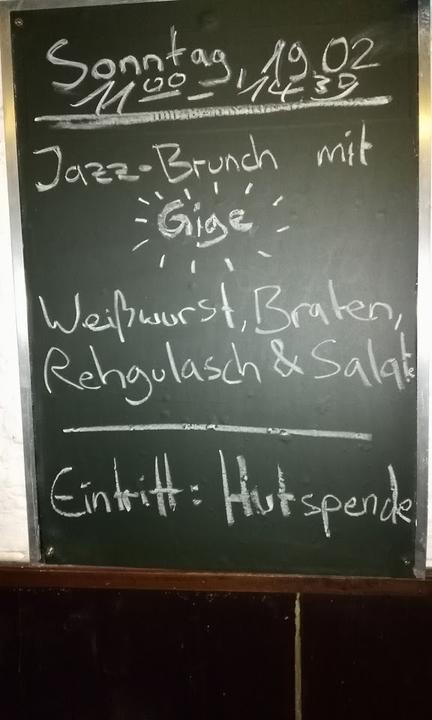 Sonntag, 19.02
11 00 - 14 30
Jazz-Brunch mit
Gige
Weißwurst, Braten,
Rehgulasch & Salate
Eintritt: Hutspende